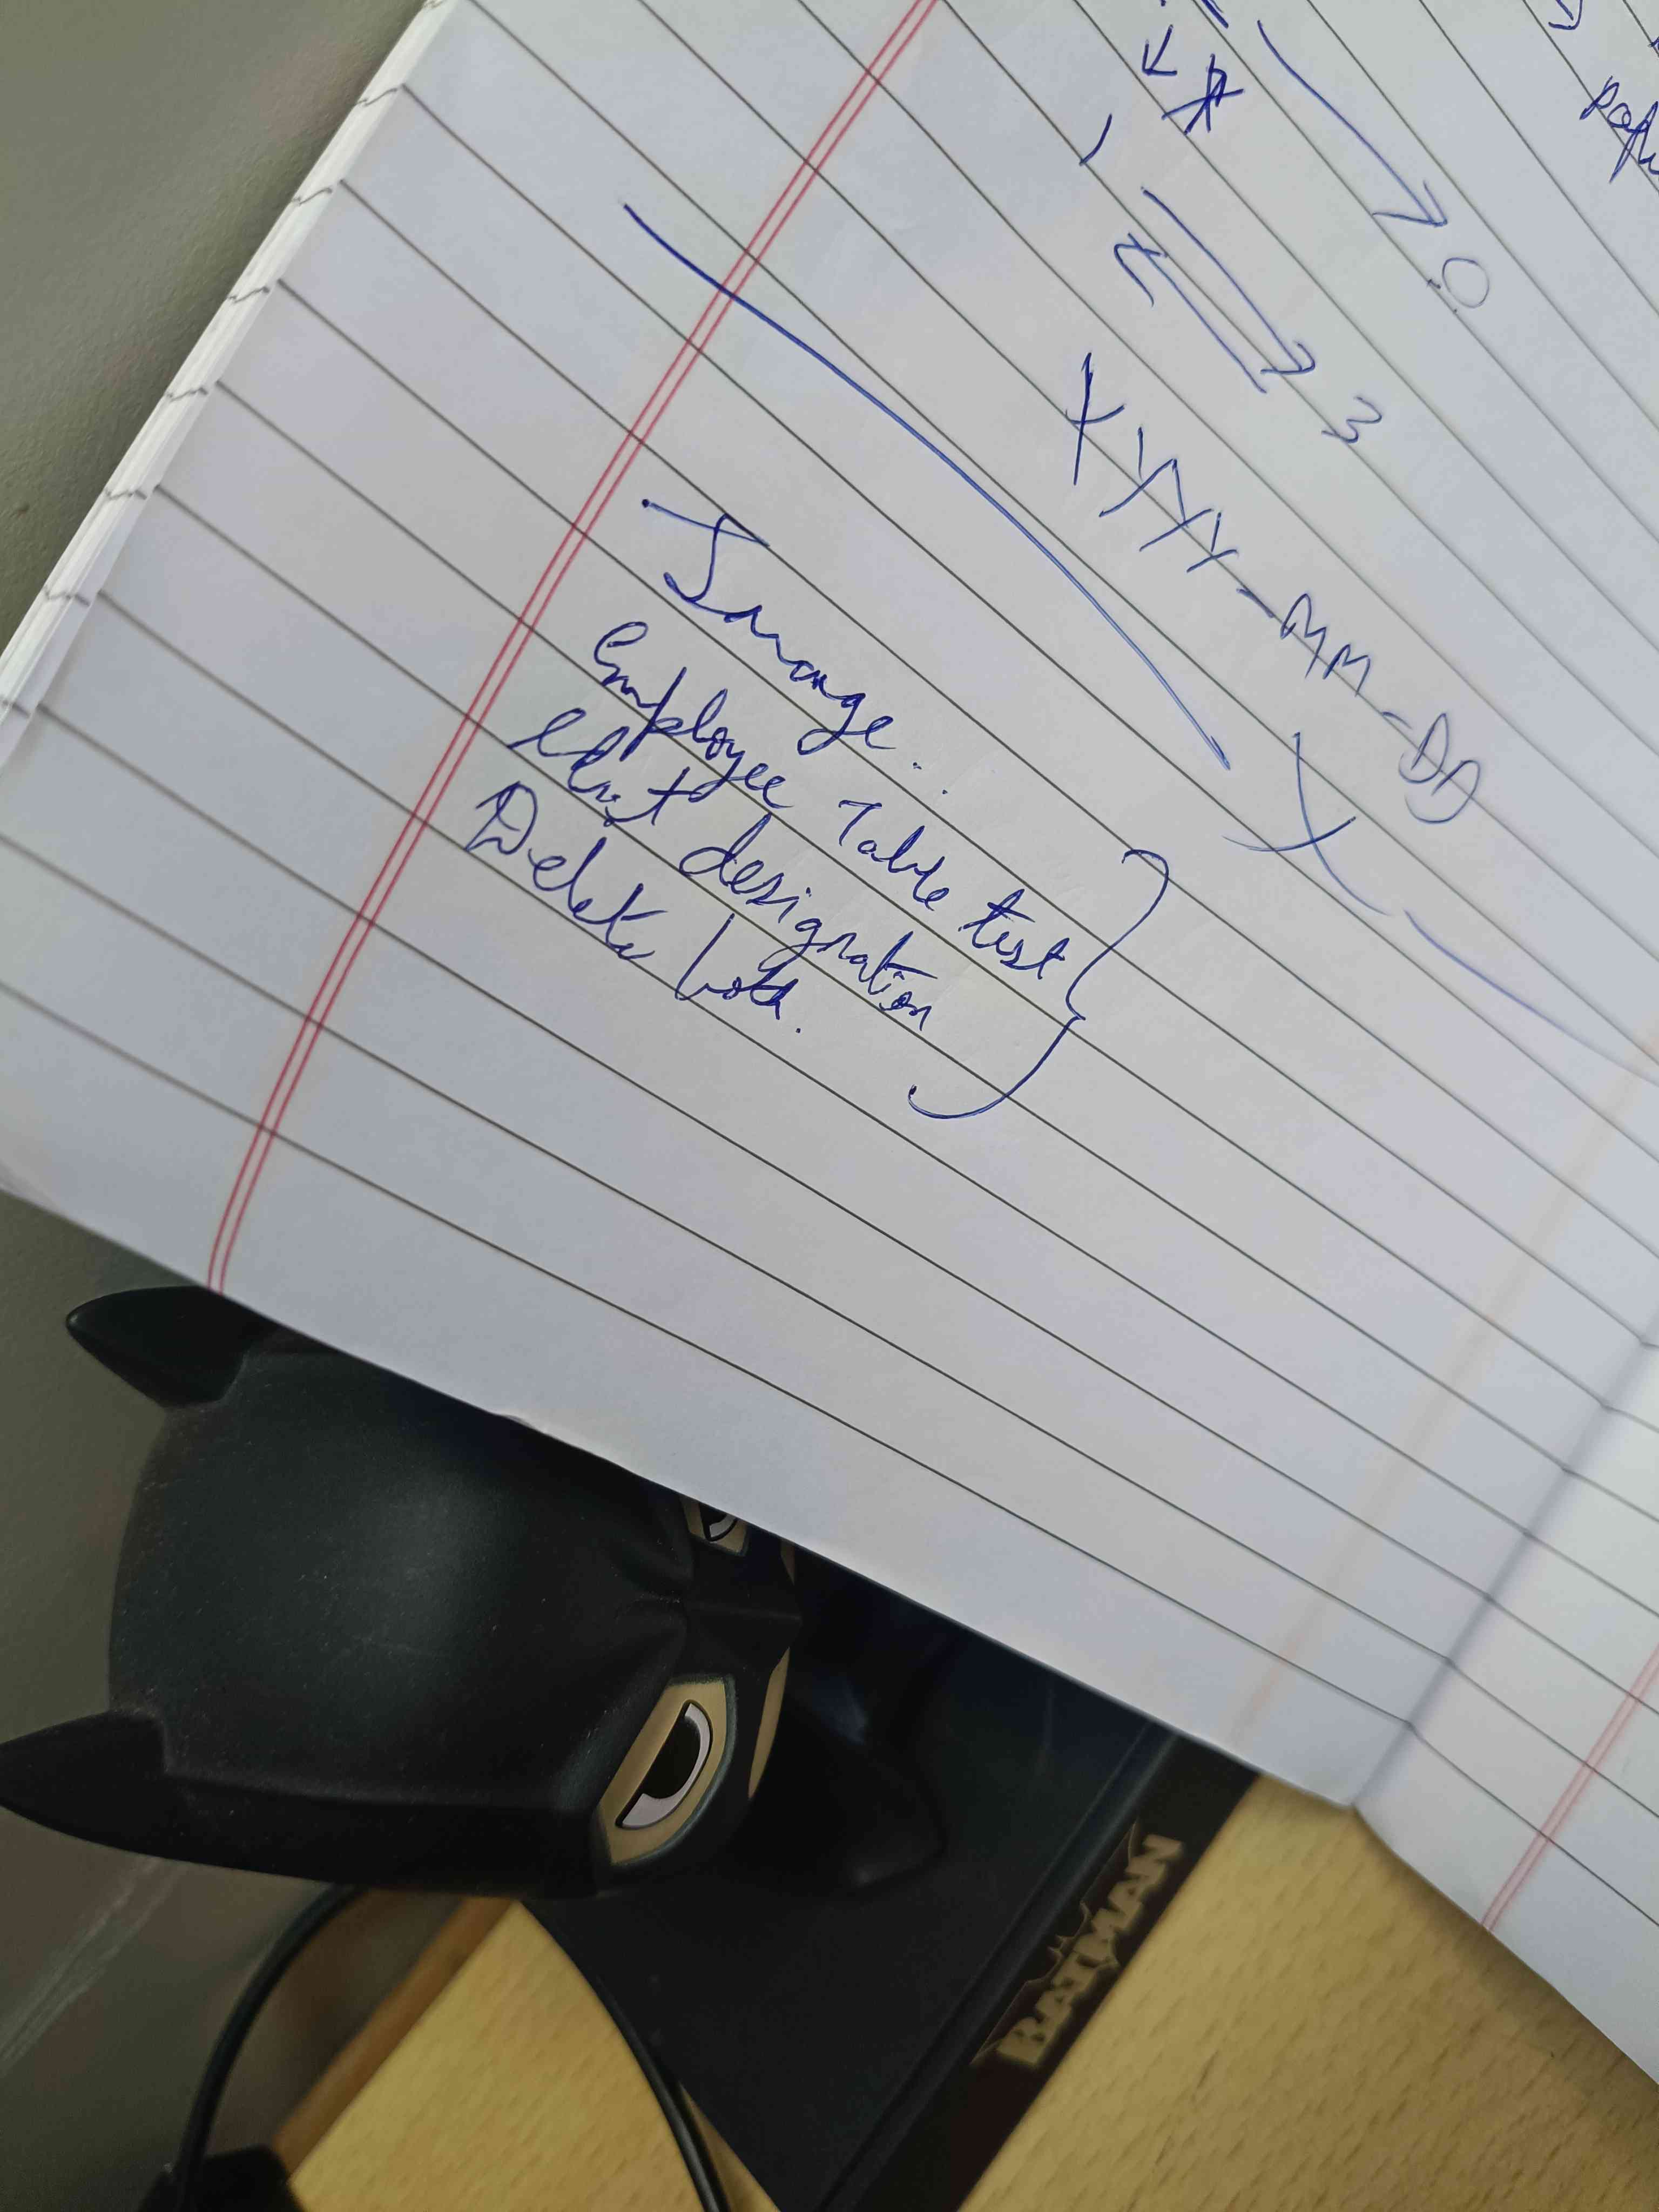 0
3
YYYY-MM-DD
Image.
Employee Table test
designation
Delete both.
BATMAN